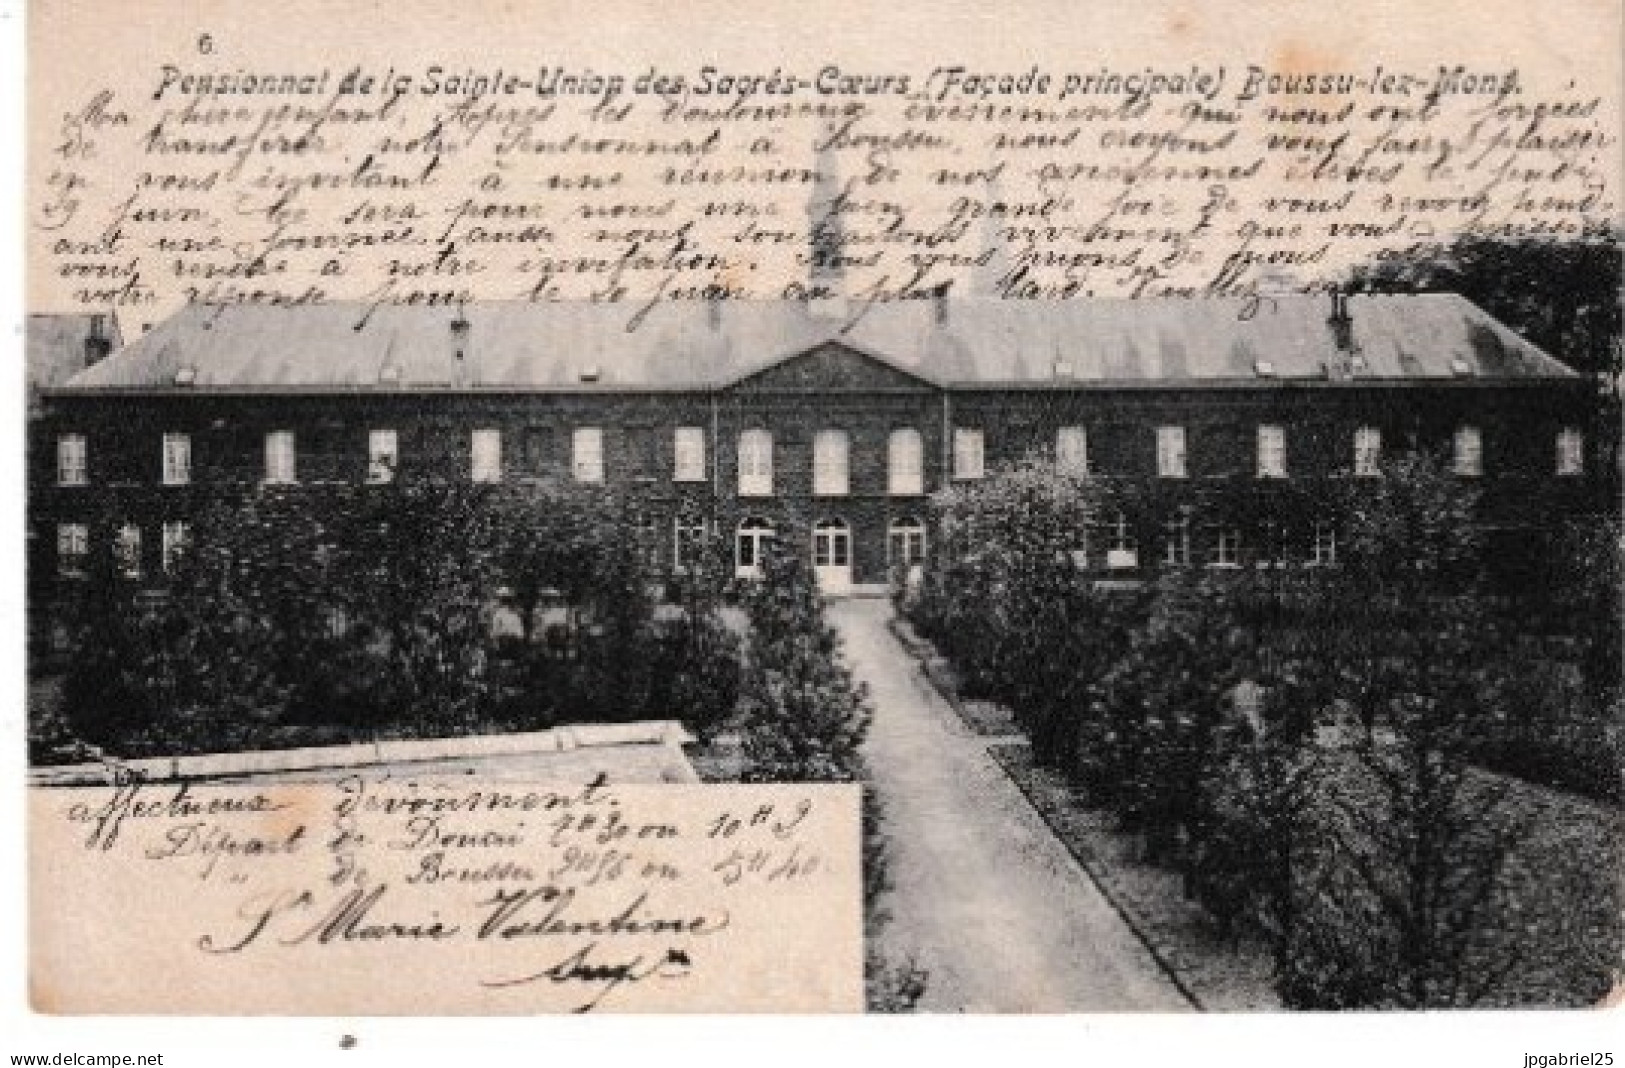 6.
Pensionnat de la Sainte-Union des Sacrés-Cœurs (Façade principale) Boussu-lez-Mons.
Ma chère enfant, Après les douloureux évènements qui nous ont forcées
de transférer notre Pensionnat à Boussu, nous croyons vous faire plaisir
en vous invitant à une réunion de nos anciennes élèves le jeudi
19 juin. Ce sera pour nous une bien grande joie de vous revoir pend-
ant une journée, aussi nous souhaitons vivement que vous puissiez
vous rendre à notre invitation. Nous vous prions de nous
votre réponse pour le 10 juin au plus tard. Veuillez
affectueux dévoûment.
Départ de Douai 7H30 ou 10H9
" de Boussu 9H56 ou 5H40
Sr Marie Valentine
Supre
delcampe.net
jpgabriel25